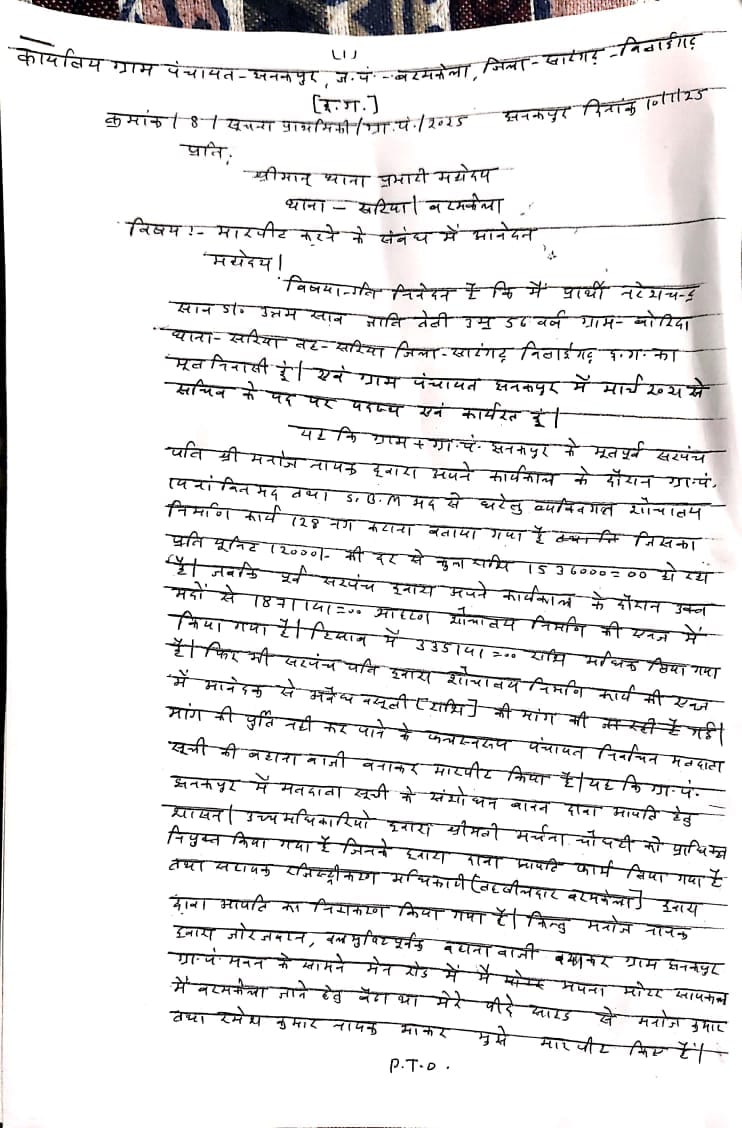 (1)
कार्यालय ग्राम पंचायत - झनकपुर, ज.पं. - बरमकेला, जिला - सारंगढ़ - बिलाईगढ़
[छ.ग.]
क्रमांक / 8 / सूचना प्राथमिकी / ग्रा.पं. / 2025 झनकपुर दिनांक 10/1/25
प्रति,
श्रीमान् थाना प्रभारी महोदय
थाना - सरिया / बरमकेला
विषय :- मारपीट करने के संबंध में आवेदन
महोदय।
विषयान्तर्गत निवेदन है कि मैं प्रार्थी
साव S/o उत्तम साव जाति तेली उम्र 56 वर्ष ग्राम - बोरिदा
थाना - सरिया तह - सरिया जिला - सारंगढ़ बिलाईगढ़ छ.ग. का
मूल निवासी हूं। एवं ग्राम पंचायत झनकपुर में मार्च से
सचिव के पद पर पदस्थ एवं कार्यरत हूं।
यह कि ग्राम + ग्रा.पं. झनकपुर के भूतपूर्व सरपंच
पति श्री मनोज नायक द्वारा अपने कार्यकाल के दौरान ग्रा.पं.
मद तथा S.B.M मद से घरेलु व्यक्तिगत शौचालय
निर्माण कार्य 128 नग कराना बताया गया है जिसका
प्रति यूनिट 12000/- की दर से कुल राशि 1536000=00 हो रहा
है। जबकि पूर्व सरपंच द्वारा अपने कार्यकाल के दौरान उक्त
मदों से =00 आहरण शौचालय निर्माण की एवज में
किया गया है। हिसाब में =00 राशि अधिक लिया गया
है। फिर भी सरपंच पति द्वारा शौचालय निर्माण कार्य की एवज
में आवेदक से अवैध वसूली [राशि] की मांग की जा रही है गई।
मांग की पुर्ति नही कर पाने के फलस्वरूप पंचायत निर्वाचन मतदाता
सूची की बहाना बाजी बनाकर मारपीट किया है। यह कि ग्रा.पं.
झनकपुर में मतदाता सूची के संशोधन बावत दावा आपत्ति हेतु
शासन / उच्च अधिकारियो द्वारा श्रीमती अर्चना चौधरी को प्राधिकृत
नियुक्त किया गया है जिनके द्वारा दावा आपत्ति फार्म लिया गया है
तथा सहायक रजिस्ट्रीकरण अधिकारी (तहसीलदार बरमकेला) द्वारा
दावा आपत्ति का निराकरण किया गया है। किन्तु मनोज नायक
द्वारा जोरजबरन, बहाना बाजी बनाकर ग्राम झनकपुर
ग्रा.पं. भवन के सामने मेन रोड में मैं अपना मोटर सायकल
में बरमकेला जाने हेतु बैठा था मेरे पीछे साइड से मनोज कुमार
तथा रमेश कुमार नायक आकर मुझे मारपीट किए हैं।
P.T.O.